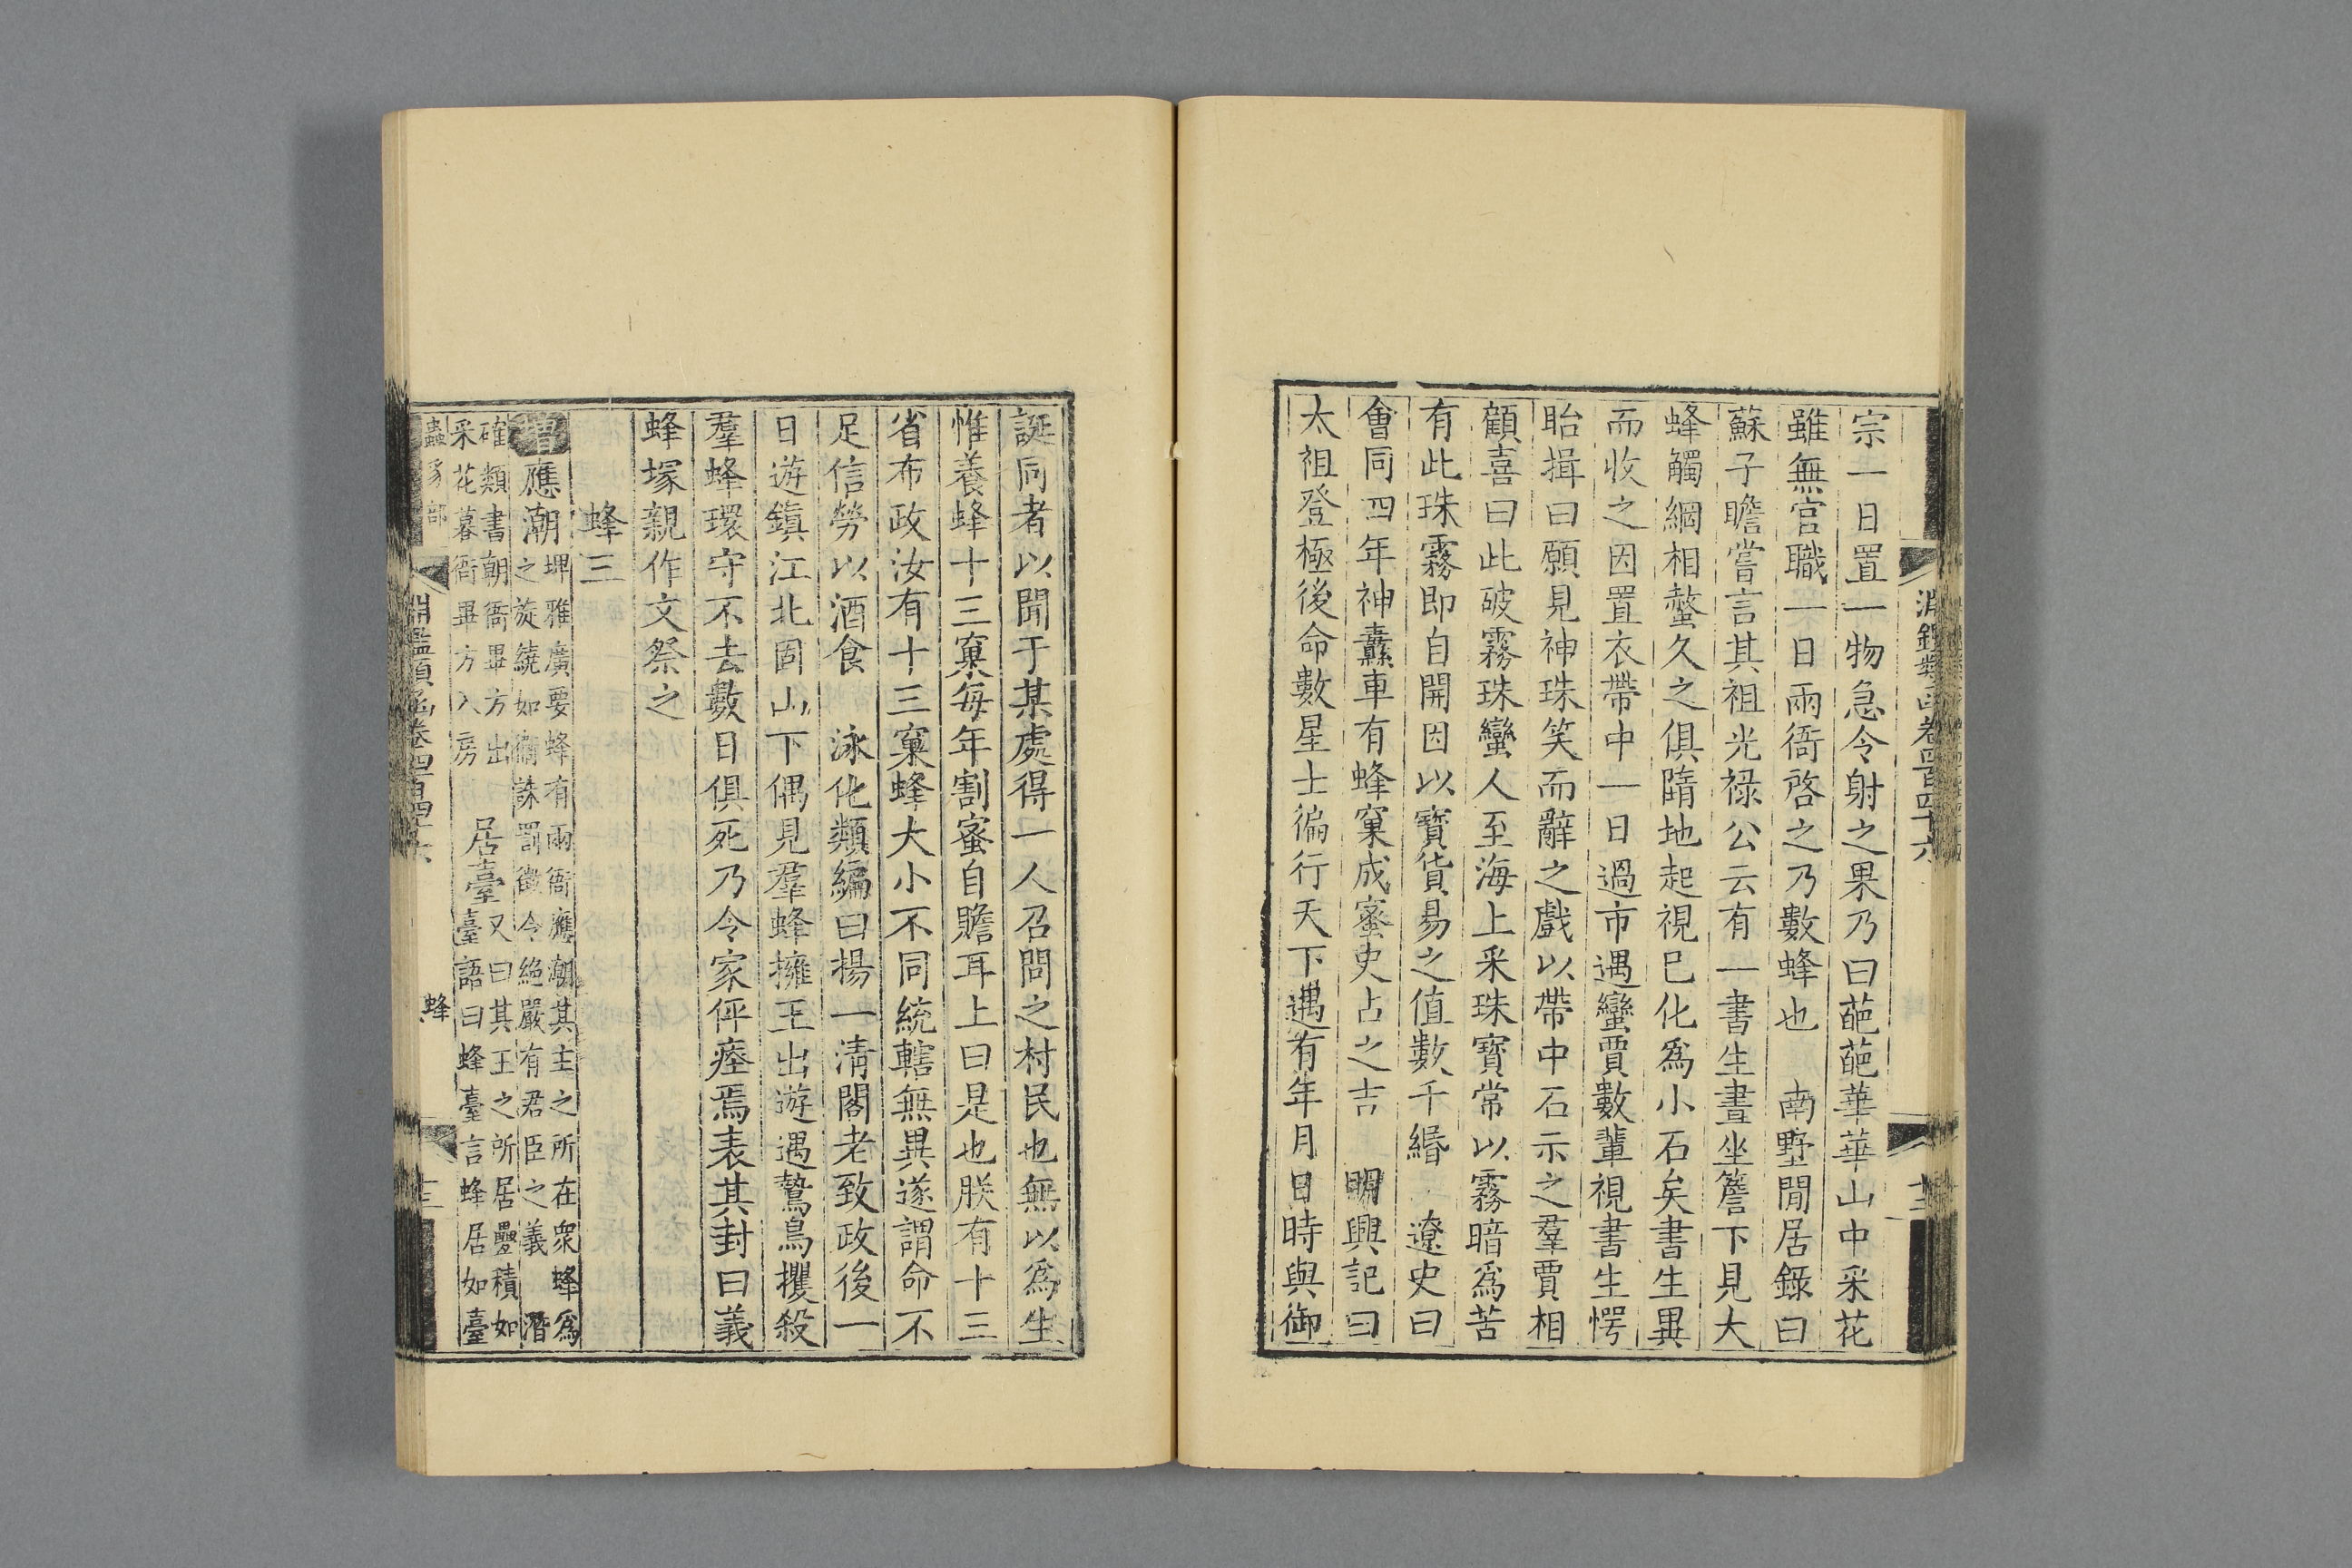 淵鑑類函卷四百四十六
宗一日置一物急令射之果乃曰葩葩華華山中采花
雖無官職一日兩衙啓之乃數蜂也　南墅閒居錄曰
蘇子瞻嘗言其祖光祿公云有一書生晝坐簷下見大
蜂觸網相螫久之俱隋地起視已化爲小石矣書生異
而收之因置衣帶中一日過市遇蠻賈數輩視書生愕
眙揖曰願見神珠笑而辭之戲以帶中石示之羣賈相
顧喜曰此破霧珠蠻人至海上采珠寶常以霧暗爲苦
有此珠霧即自開因以寶貨易之值數千緡　遼史曰
會同四年神纛車有蜂窠成蜜史占之吉　明興記曰
太祖登極後命數星士徧行天下遇有年月日時與御
誕同者以聞于某處得一人召問之村民也無以爲生
惟養蜂十三窠每年割蜜自贍耳上曰是也朕有十三
省布政汝有十三窠蜂大小不同統轄無異遂謂命不
足信勞以酒食　泳化類編曰楊一清閣老致政後一
日遊鎮江北固山下偶見羣蜂擁王出遊遇鷙鳥攫殺
羣蜂環守不去數日俱死乃令家伻瘞焉表其封曰義
蜂塚親作文祭之
蜂三
增應潮埤雅廣要蜂有兩衙應潮其主之所在衆蜂爲
之旋繞如衞誅罰徵令絕嚴有君臣之義　潛
確類書朝衙畢方出
采花暮衙畢方入房
居臺又曰其王之所居疊積如
臺語曰蜂臺言蜂居如臺
蟲豸部
淵鑑類函卷四百四十六
蜂